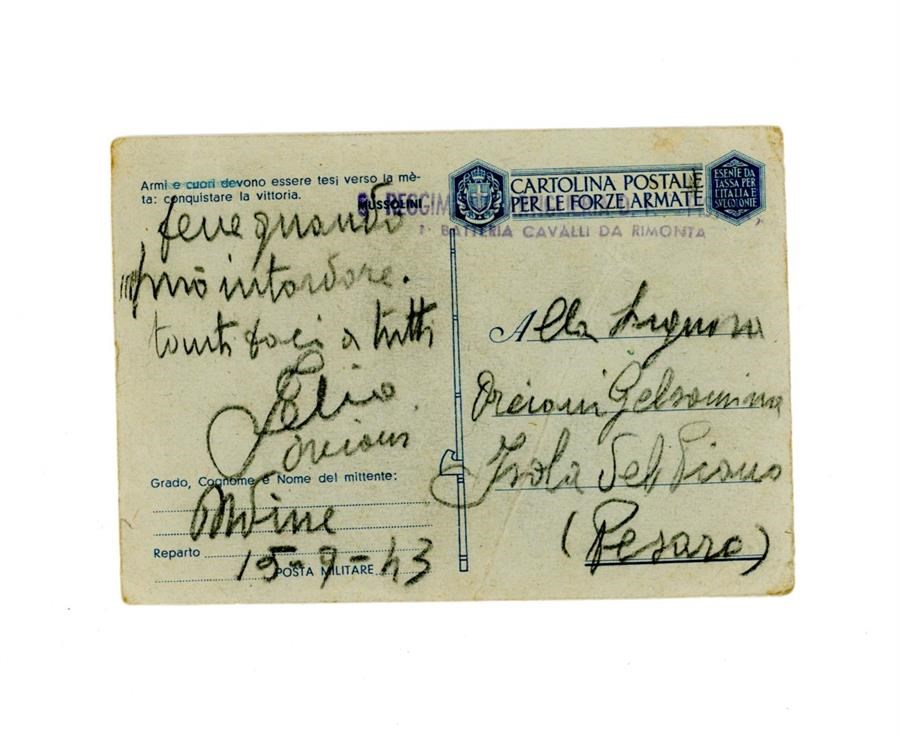 Armi e cuori devono essere tesi verso la mè-
ta: conquistare la vittoria.
MUSSOLINI
CARTOLINA POSTALE
PER LE FORZE ARMATE
ESENTE DA
TASSA PER
L'ITALIA E
SUE COLONIE
BATTERIA CAVALLI DA RIMONTA
quando
può
tanti baci a tutti
Elio
Orciani
Grado, Cognome e Nome del mittente:
Udine
Reparto
15-9-43
POSTA MILITARE
Alla Signora
Orciani Gelsomina
Isola Del Piano
(Pesaro)